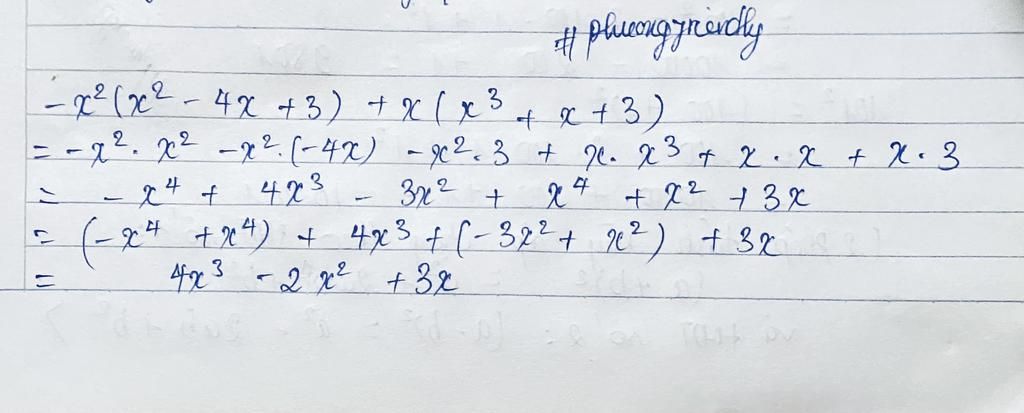 # phuongynerdly
-x²(x² - 4x + 3) + x(x³ + x + 3)
= -x². x² -x².(-4x) - x².3 + x. x³ + x . x + x . 3
= - x⁴ + 4x³ - 3x² + x⁴ + x² + 3x
= (-x⁴ + x⁴) + 4x³ + (-3x² + x²) + 3x
= 4x³ - 2x² + 3x